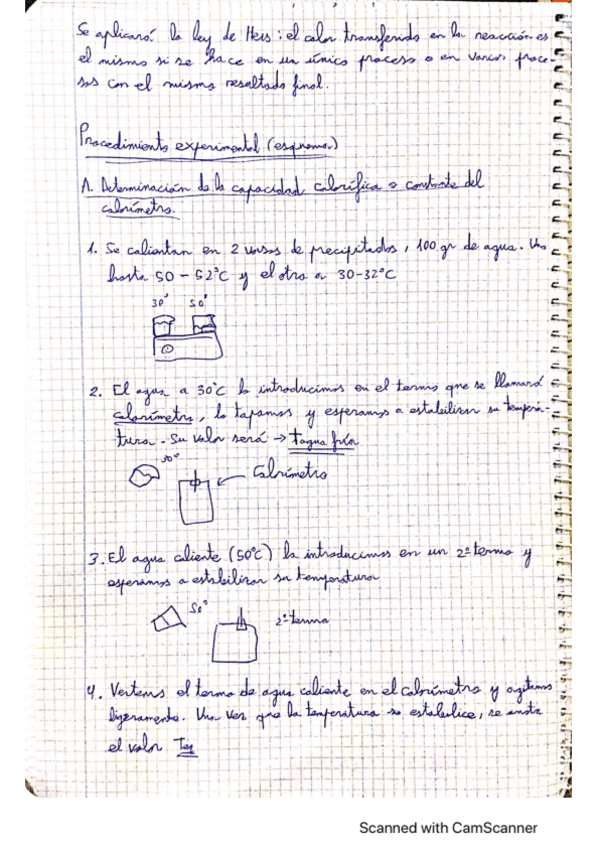 Se aplicará la ley de Hess: el calor transferido en la reacción es
el mismo si se hace en un único proceso o en varios proce-
sos con el mismo resultado final.
Procedimiento experimental (esquema)
A. Determinación de la capacidad calorífica o constante del
calorímetro.
1. Se calientan en 2 vasos de precipitados, 100 gr de agua. Uno
hasta 50-52°C y el otro a 30-32°C
30° 50°
2. El agua a 30°C la introducimos en el termo que se llamará
calorímetro, lo tapamos y esperamos a estabilizar su tempera-
tura. Su valor será → Tagua fría
30°
Calorímetro
3. El agua caliente (50°C) la introducimos en un 2º termo y
esperamos a estabilizar su temperatura
50°
2º termo
4. Vertemos el termo de agua caliente en el calorímetro y agitamos
ligeramente. Una vez que la temperatura se estabilice, se anota
el valor Teq
Scanned with CamScanner